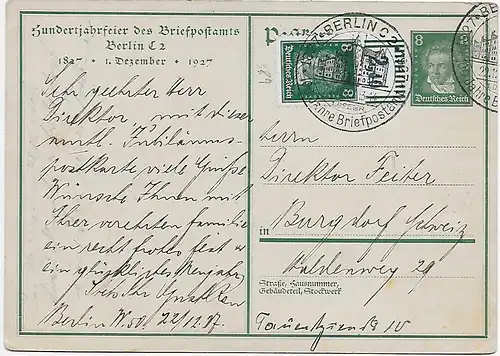 Hundertjahrfeier des Briefpostamts
Berlin C 2
1827 • 1. Dezember • 1927
Sehr geehrter Herr
Direktor, mit dieser
Jubiläums-
postkarte viele Grüße
Wünsche Ihnen mit
Ihrer verehrten Familie
ein recht frohes Fest u
ein glückliches Neujahr
Berlin W.50. 22/12.27.
BERLIN C 2
Jahre Briefpostamt
8
Deutsches Reich
8
8 8
Deutsches Reich
27 • BE
Herrn
Direktor Feiter
in Burgdorf Schweiz
Waldenweg 29
Straße, Hausnummer,
Gebäudeteil, Stockwerk